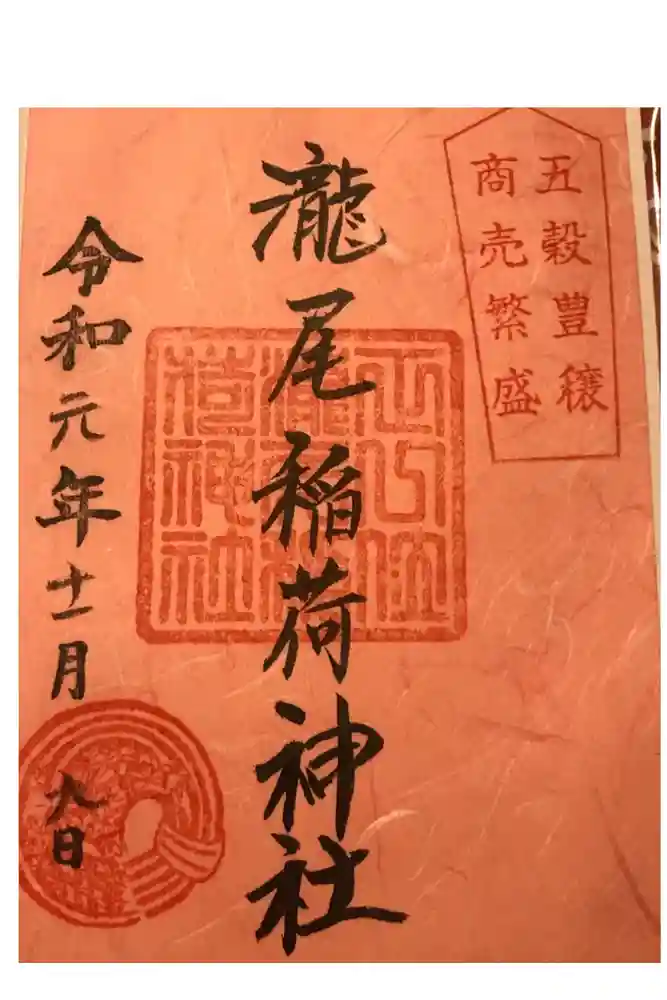 五穀豊穣
商売繁盛
瀧尾稲荷神社
令和元年十一月九日